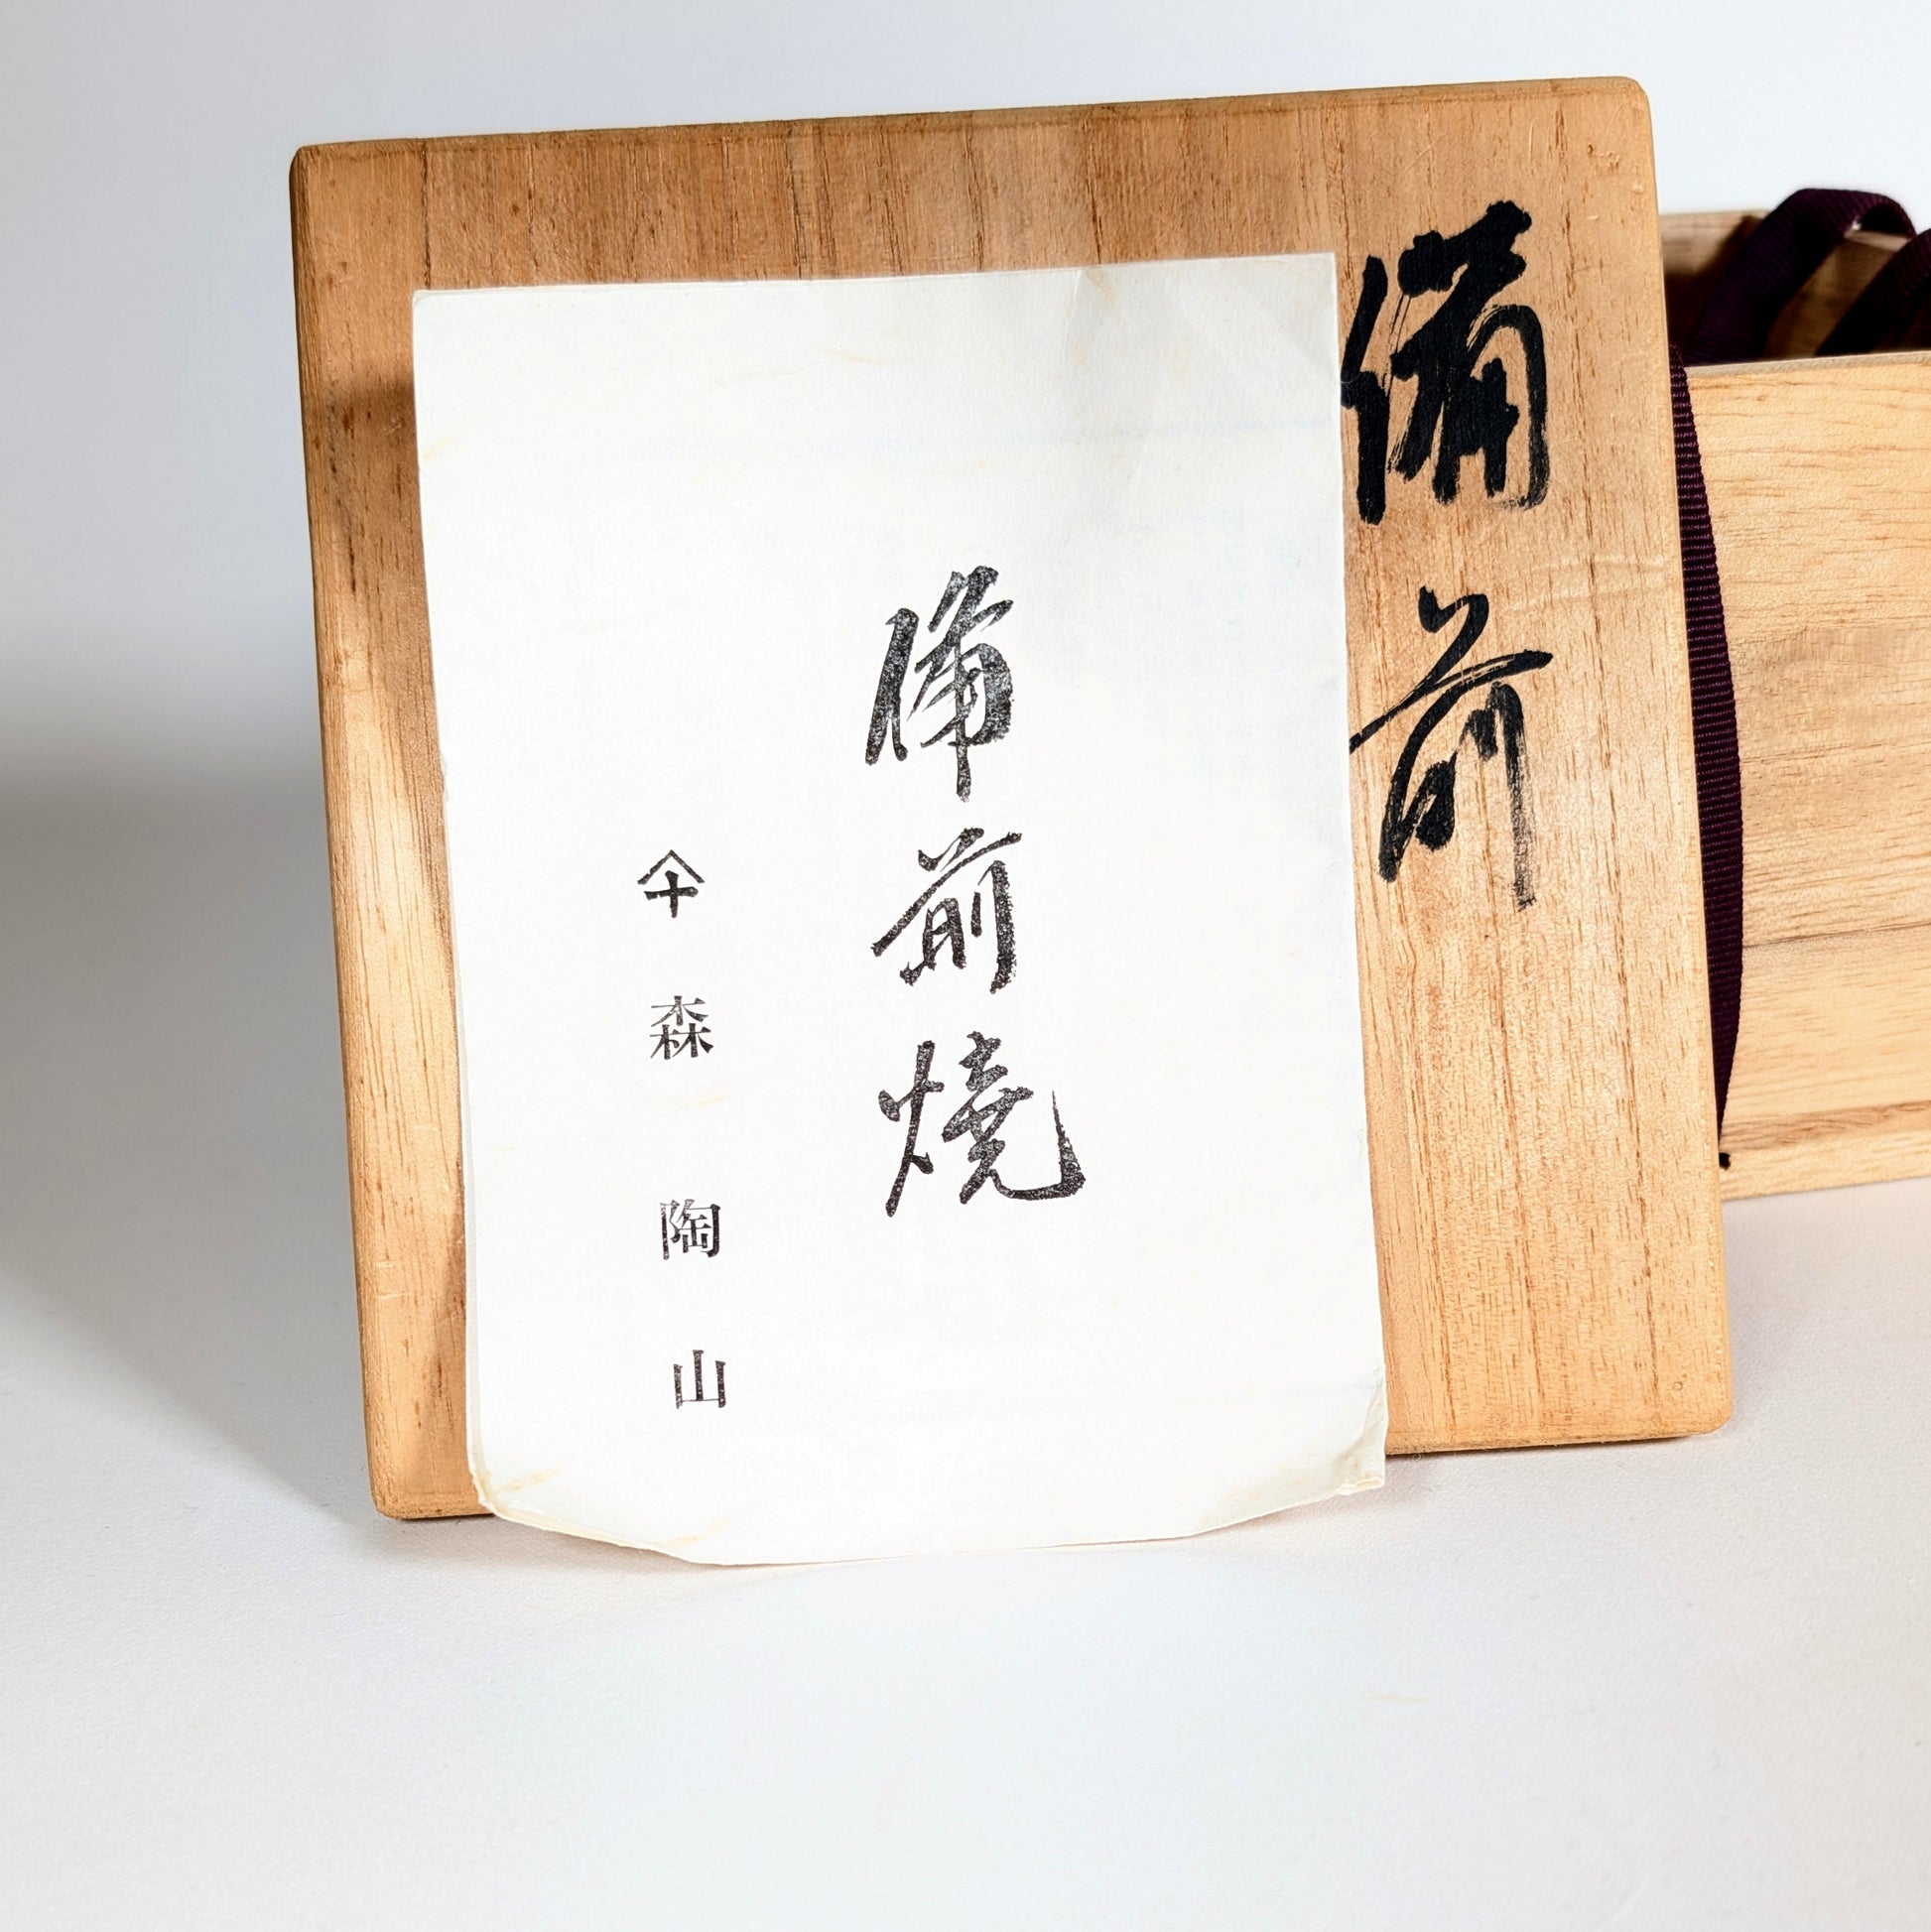 備前
備前焼
森陶山